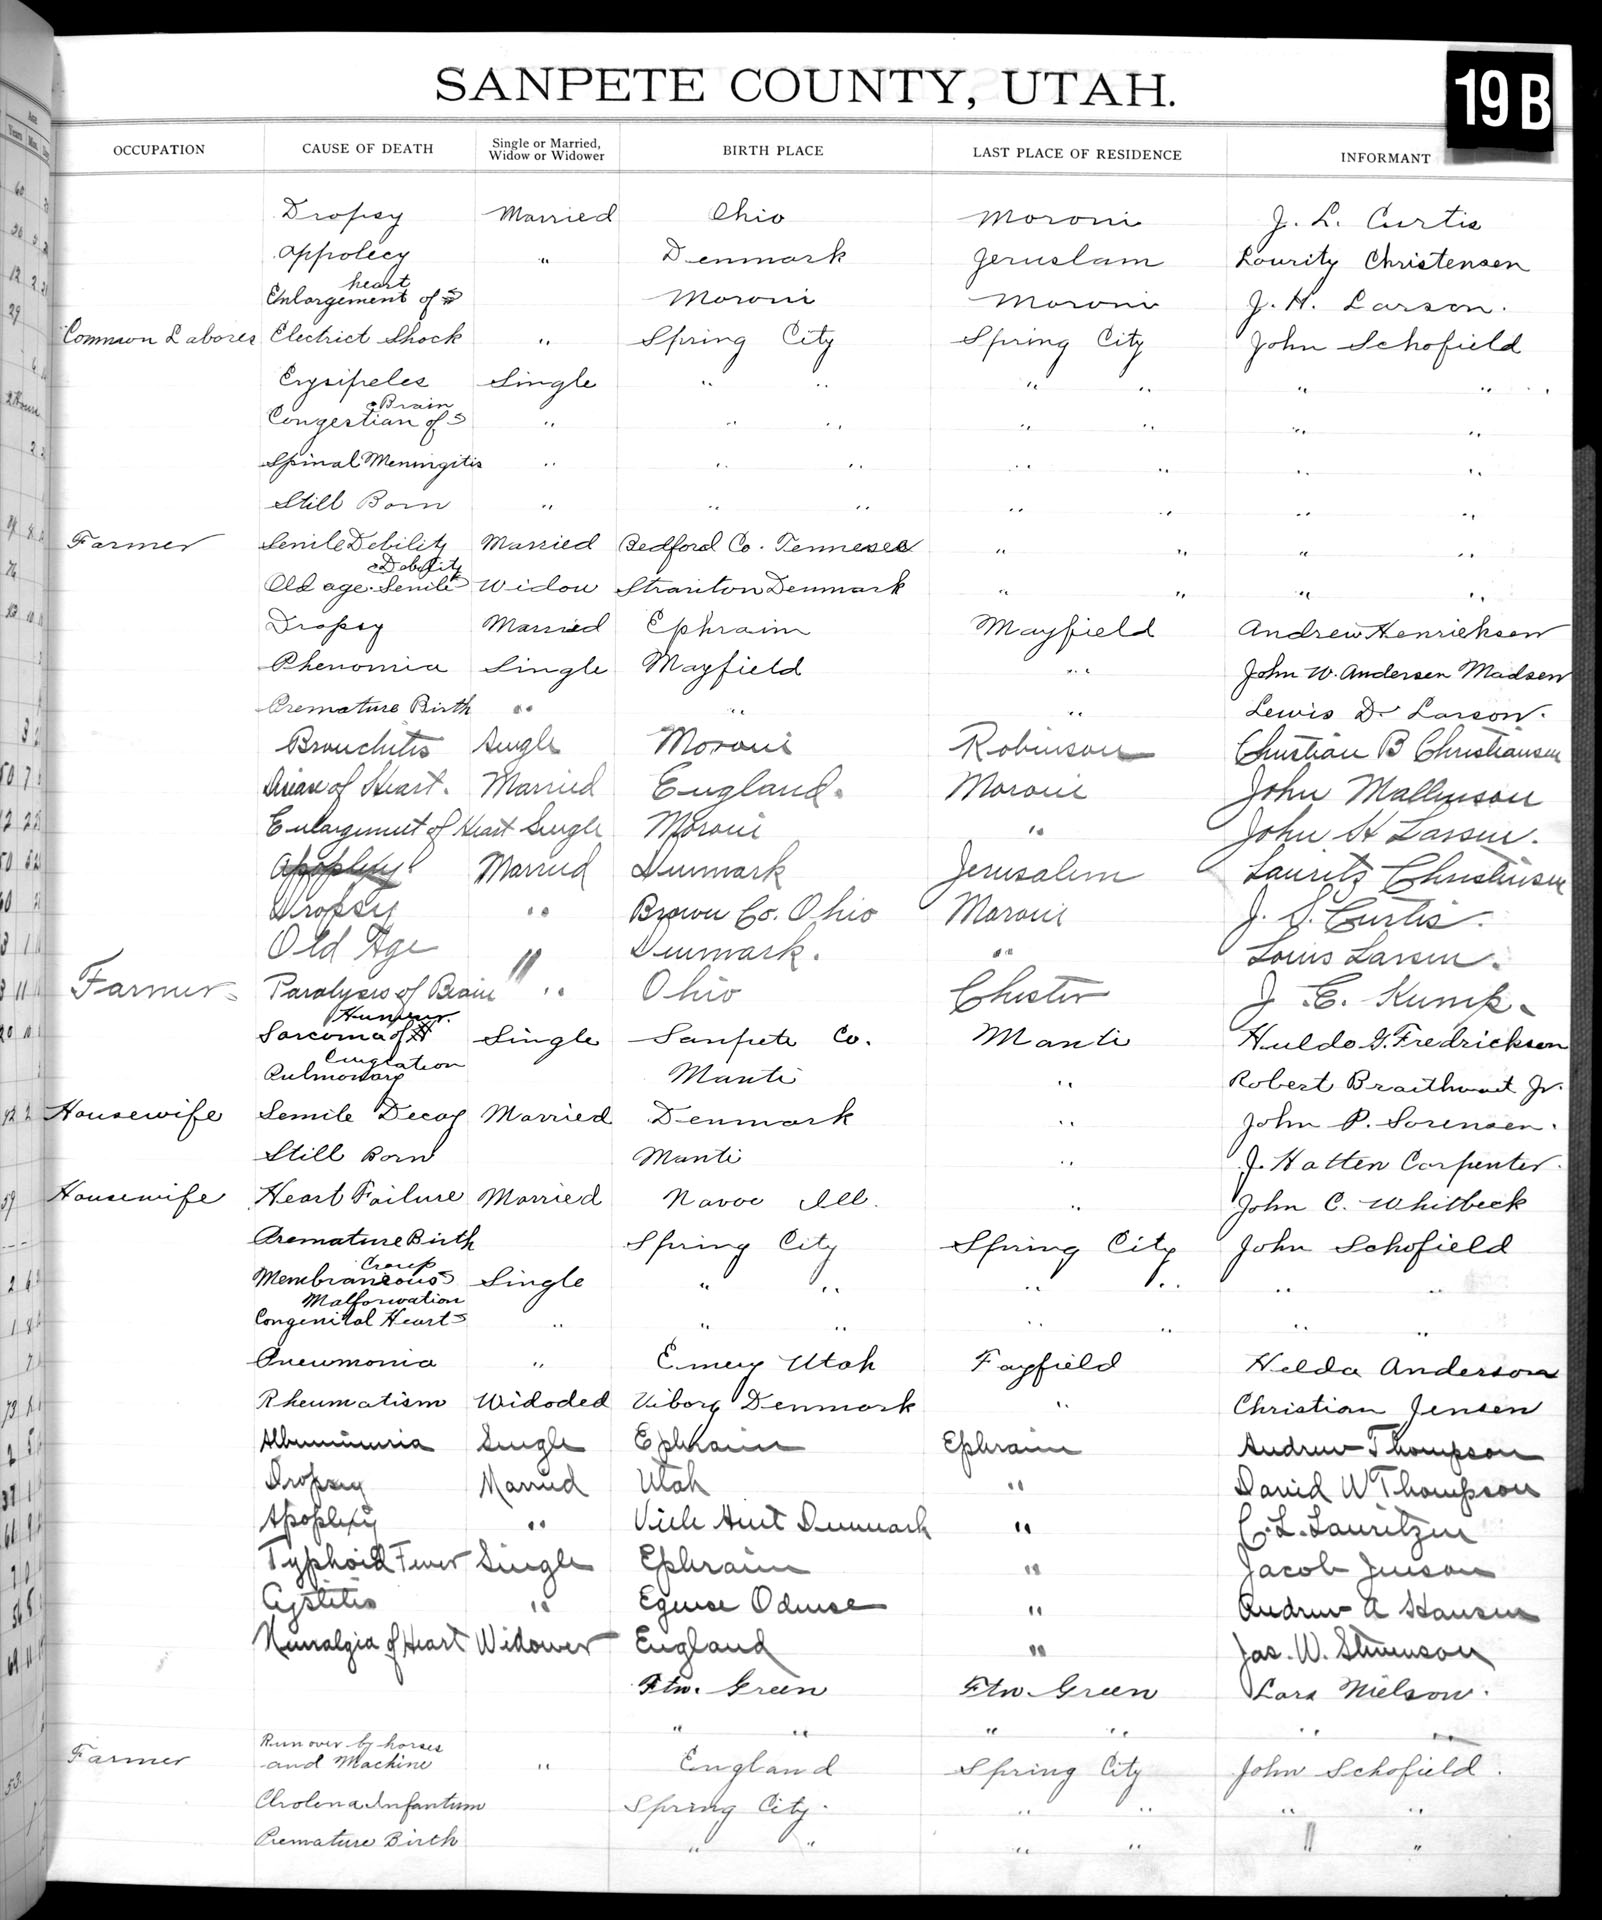 SANPETE COUNTY, UTAH.
19 B
OCCUPATION CAUSE OF DEATH Single or Married, Widow or Widower BIRTH PLACE LAST PLACE OF RESIDENCE INFORMANT
Dropsy Married Ohio Moroni J. L. Curtis
Appolecy " Denmark Jeruslam Lourity Christensen
heart
Enlargement of Moroni Moroni J. H. Larson.
Common Laborer Electrict Shock " Spring City Spring City John Schofield
Erysipeles Single " " " " " "
Brain
Congestian of " " " " " " "
Spinal Meningitis " " " " " " "
Still Born " " " " " " "
Farmer Senile Debility Married Bedford Co. Tennesee " " " "
Debility
Old age. Senile Widow Denmark " " " "
Dropsy Married Ephraim Mayfield Andrew Henricksen
Phenomia Single Mayfield " John W. Andersen Madsen
Premature Birth " " " Lewis D. Larson.
Bronchitis Single Moroni Robinson Christian B Christiansen
Disease of Heart. Married England. Moroni John Mallinson
Enlargement of Heart Single Moroni " John H Larsen.
Apoplexy Married Denmark Jerusalem Lauritz Christensen
Dropsy " Brown Co. Ohio Moroni J. S. Curtis.
Old Age " Denmark. " Louis Larsen.
Farmer Paralysis of Brain " Ohio Chester J. E. Kump.
Sarcoma of Single Sanpete Co. Manti Huldo G. Fredrickson
Pulmonary Manti " Robert Braithwait Jr.
Housewife Semile Decay Married Denmark " John P. Sorensen.
Still Born Manti " J. Hatten Carpenter.
Housewife Heart Failure Married Navoo Ill. " John C. Whitbeck
Premature Birth Spring City Spring City John Schofield
Croup
Membraneous Single " " " " " "
Malformation
Congenital Heart " " " " " " "
Pneumonia " Emery Utah Fayfield Helda Anderson
Rheumatism Widoded Viborg Denmark " Christian Jensen
Albuminuria Single Ephraim Ephraim Andrew Thompson
Dropsy Married Utah " David W Thompson
Apoplexy " Denmark " C. L. Lauritzen
Typhoid Fever Single Ephraim " Jacob Jenson
Cystitis " Egense Odense " Andrew A Hansen
Neuralgia of Heart Widower England " Jas. W. Stevenson
Ftn. Green Ftn. Green Lars Nielson.
" " " " " "
Run over by horses
Farmer and Machine " England Spring City John Schofield.
Cholena Infantum Spring City. " " " "
Premature Birth " " " " " "